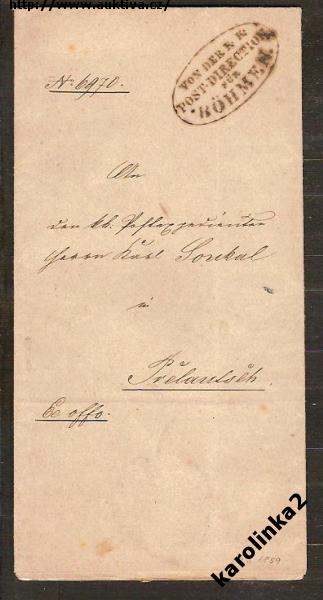 http://www.auktiva.cz/
VON DER K. K.
POST-DIRECTION
FÜR
BÖHMEN
No 6970.
An
den kk. Postexpedienten
Herrn Karl Soukal
in
Přelautsch.
Ex offo.
1859
karolinka2